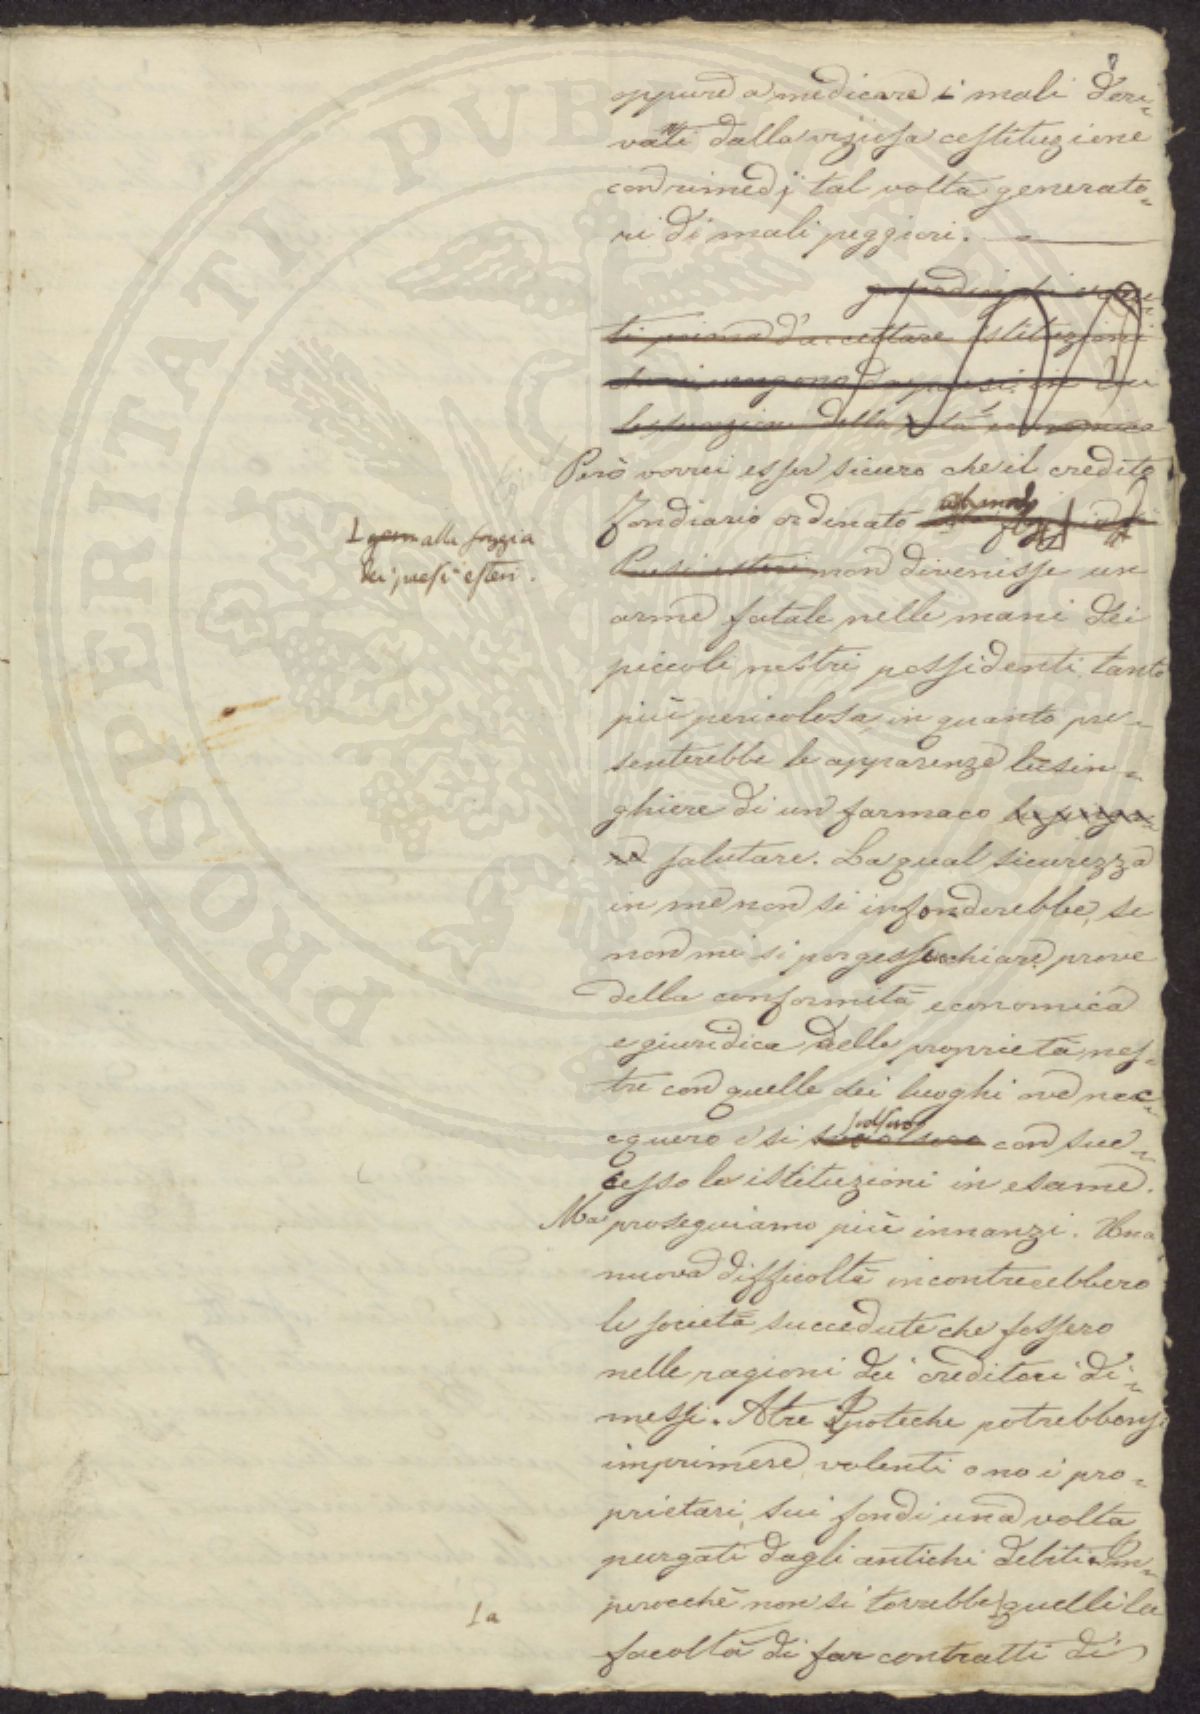 oppure a medicare i mali deri-
vanti dalla viziosa costituzione
con rimedj tal volta generato-
ri di mali peggiori.
ti prima d'accettare istituzioni
che ci vengono
della
Però vorrei esser sicuro che il credito
fondiario ordinato
Paesi esteri non divenisse un
alla foggia
dei paesi esteri.
arme fatale nelle mani dei
piccoli nostri possidenti, tanto
più pericolosa, in quanto pre-
senterebbe le apparenze lusin-
ghiere di un farmaco
salutare. La qual sicurezza
in me non si infonderebbe, se
non mi si porgesser chiare prove
della conformità economica
e giuridica delle proprietà nos-
tre con quelle dei luoghi ove nac-
quero e si con suc-
cesso le istituzioni in esame.
Ma proseguiamo più innanzi. Una
nuova difficoltà incontrerebbero
le società succedute che fossero
nelle ragioni dei creditori di-
messi. Altre Ipoteche potrebbonsi
imprimere, volenti o no i pro-
prietari, sui fondi una volta
purgati dagli antichi debiti. Im-
perocchè non si torrebbe quelli la
1 a
facoltà di far contratti di
PROSPERITATI PUBLICAE